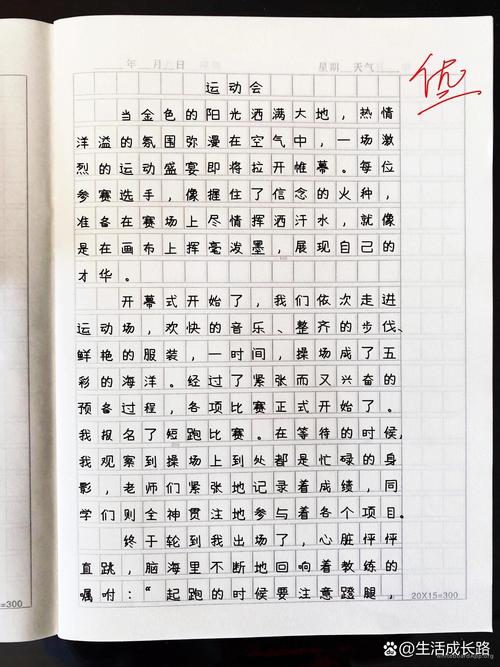 年 月 日 星期 天气
优
运动会
当金色的阳光洒满大地，热情
洋溢的氛围弥漫在空气中，一场激
烈的运动盛宴即将拉开帷幕。每位
参赛选手，像握住了信念的火种，
准备在赛场上尽情挥洒汗水，就像
是在画布上挥毫泼墨，展现自己的
才华。
开幕式开始了，我们依次走进
运动场，欢快的音乐、整齐的步伐、
鲜艳的服装，一时间，操场成了五
彩的海洋。经过了紧张而又兴奋的
预备过程，各项比赛正式开始了。
我报名了短跑比赛。在等待的时候，
我观察到操场上到处都是忙碌的身
影，老师们紧张地记录着成绩，同
学们则全神贯注地参与着各个项目。
终于轮到我出场了，心脏怦怦
直跳，脑海里不断地回响着教练的
嘱咐：“起跑的时候要注意蹬腿，
20X15=300
=300
@生活成长路